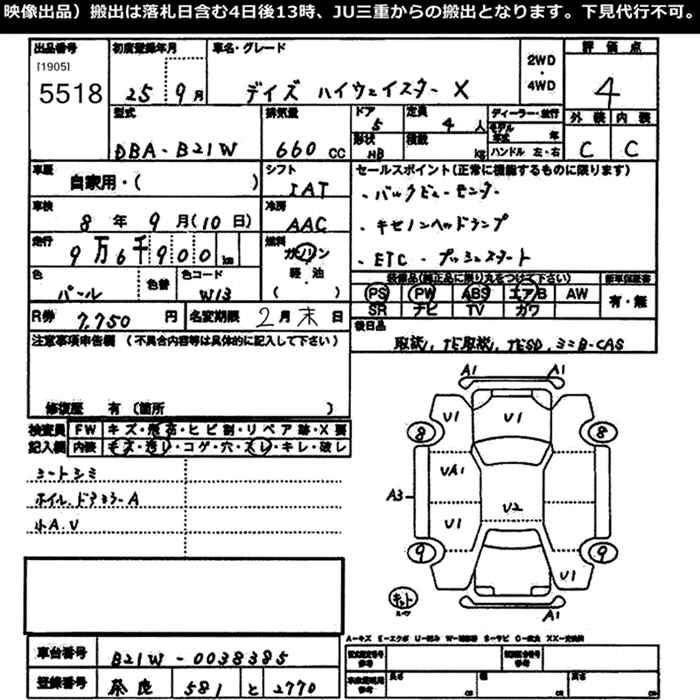 映像出品）搬出は落札日含む4日後13時、JU三重からの搬出となります。下見代行不可。
出品番号 初度登録年月 車名・グレード 2WD・4WD 評価点
[1905]
5518 25 9月 デイズ ハイウェイスター X 4
型式 排気量 ドア 5 定員 4人 ディーラー・並行 外装 内装
DBA-B21W 660cc 形状 HB 積載 kg モデル年式 年 ハンドル 左・右 C C
車歴 自家用・( ) シフト IAT セールスポイント(正常に機能するものに限ります)
・バックビューモニター
車検 8年 9月(10日) 冷房 AAC ・キセノンヘッドランプ
走行 9万6千900km 燃料 ガソリン 軽・油 ( ) ・ETC・プッシュスタート
色 パール 色替 色コード W13 装備品(純正品に限り丸をつけて下さい) 新車保証書
PS PW ABS エア/B AW 有・無
SR ナビ TV カワ
R券 7,750円 名変期限 2月末日 後日品
注意事項申告欄（不具合内容等は具体的に記入して下さい） 取説, TE取説, TESD, ミニB-CAS
修復歴 有（箇所 ）
検査員記入欄 FW キズ・飛石・ヒビ割・リペア跡・X要
内装 キズ・汚レ・コゲ・穴・スレ・キレ・破レ
シートシミ
ホイル、ドアミラーA
小A.V
A1 A1
U1 U1 U1
8 8
UA1
A3 U2
U1
9 9
U1
A1
A-キズ E-エクボ U-凹み W-補修跡 S-サビ C-腐食 XX-交換済
車台番号 B21W-0038385
登録番号 奈良 581 と 2770
長さ 幅 高さ
cm cm cm